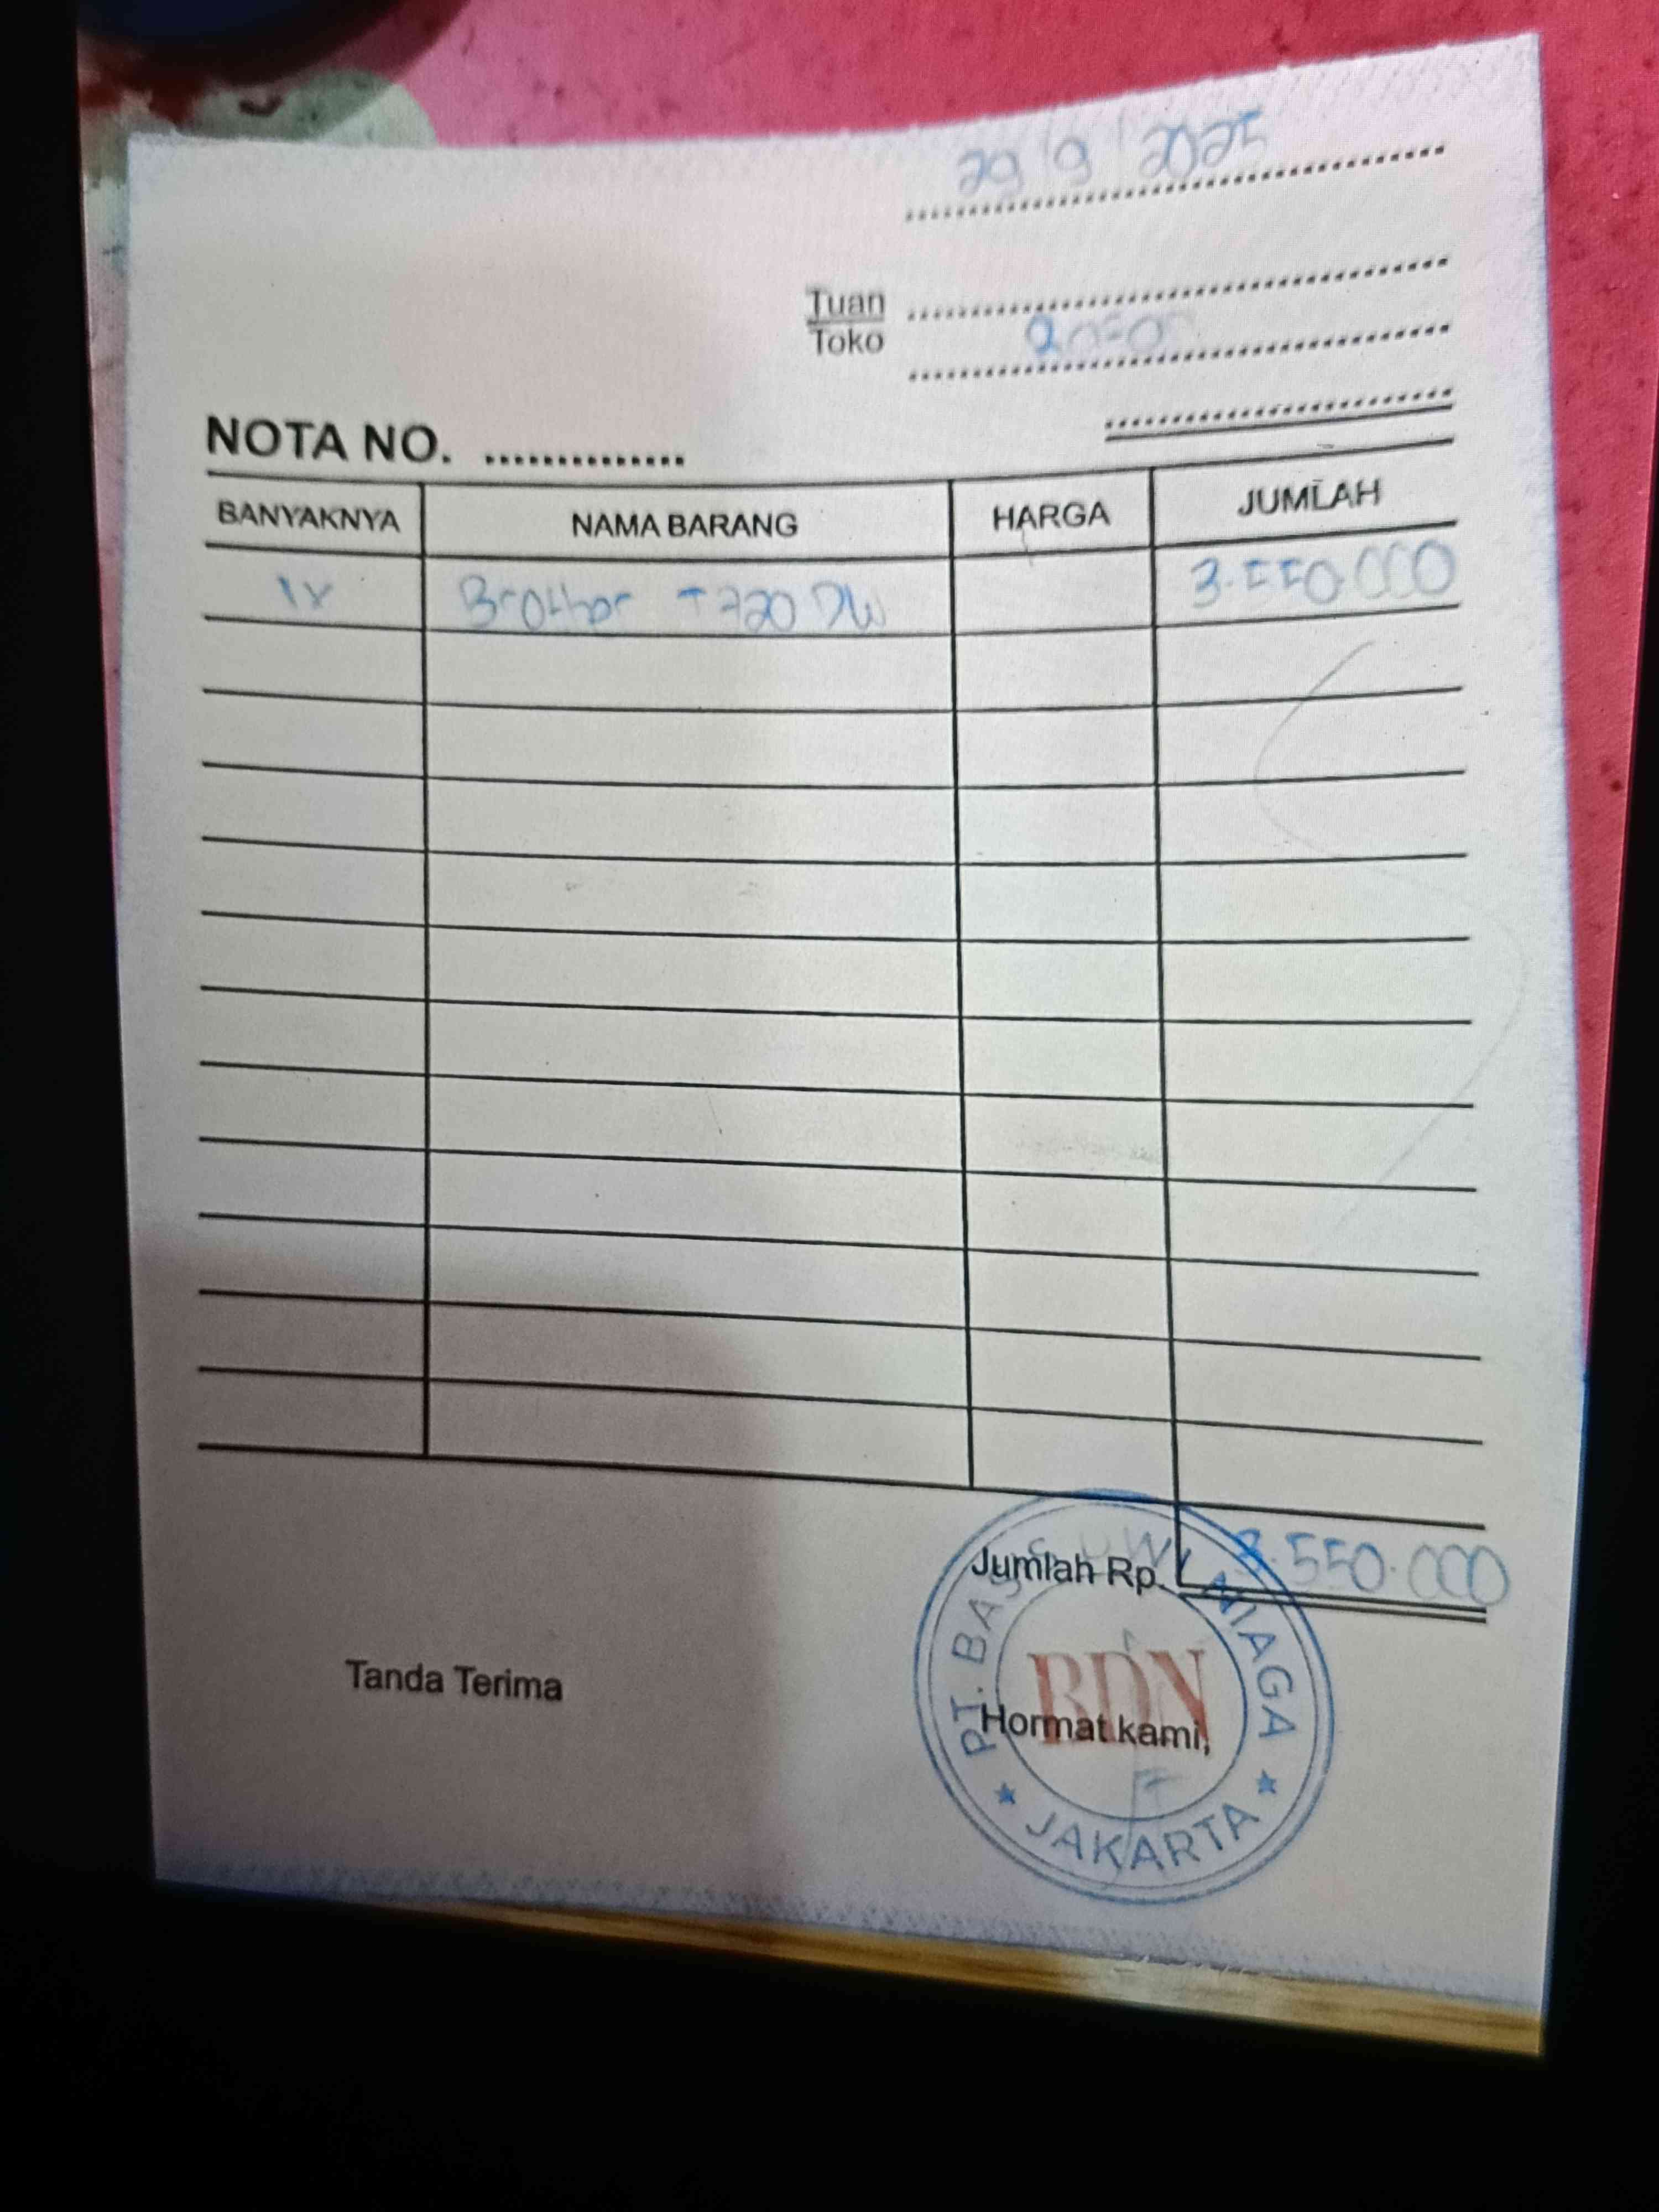 29/9/2025
Tuan
Toko
NOTA NO. ..............
BANYAKNYA NAMA BARANG HARGA JUMLAH
1x Brother T720 DW 3.550.000
Jumlah Rp. 3.550.000
Tanda Terima
Hormat kami,
PT. BAS NIAGA
BDN
JAKARTA